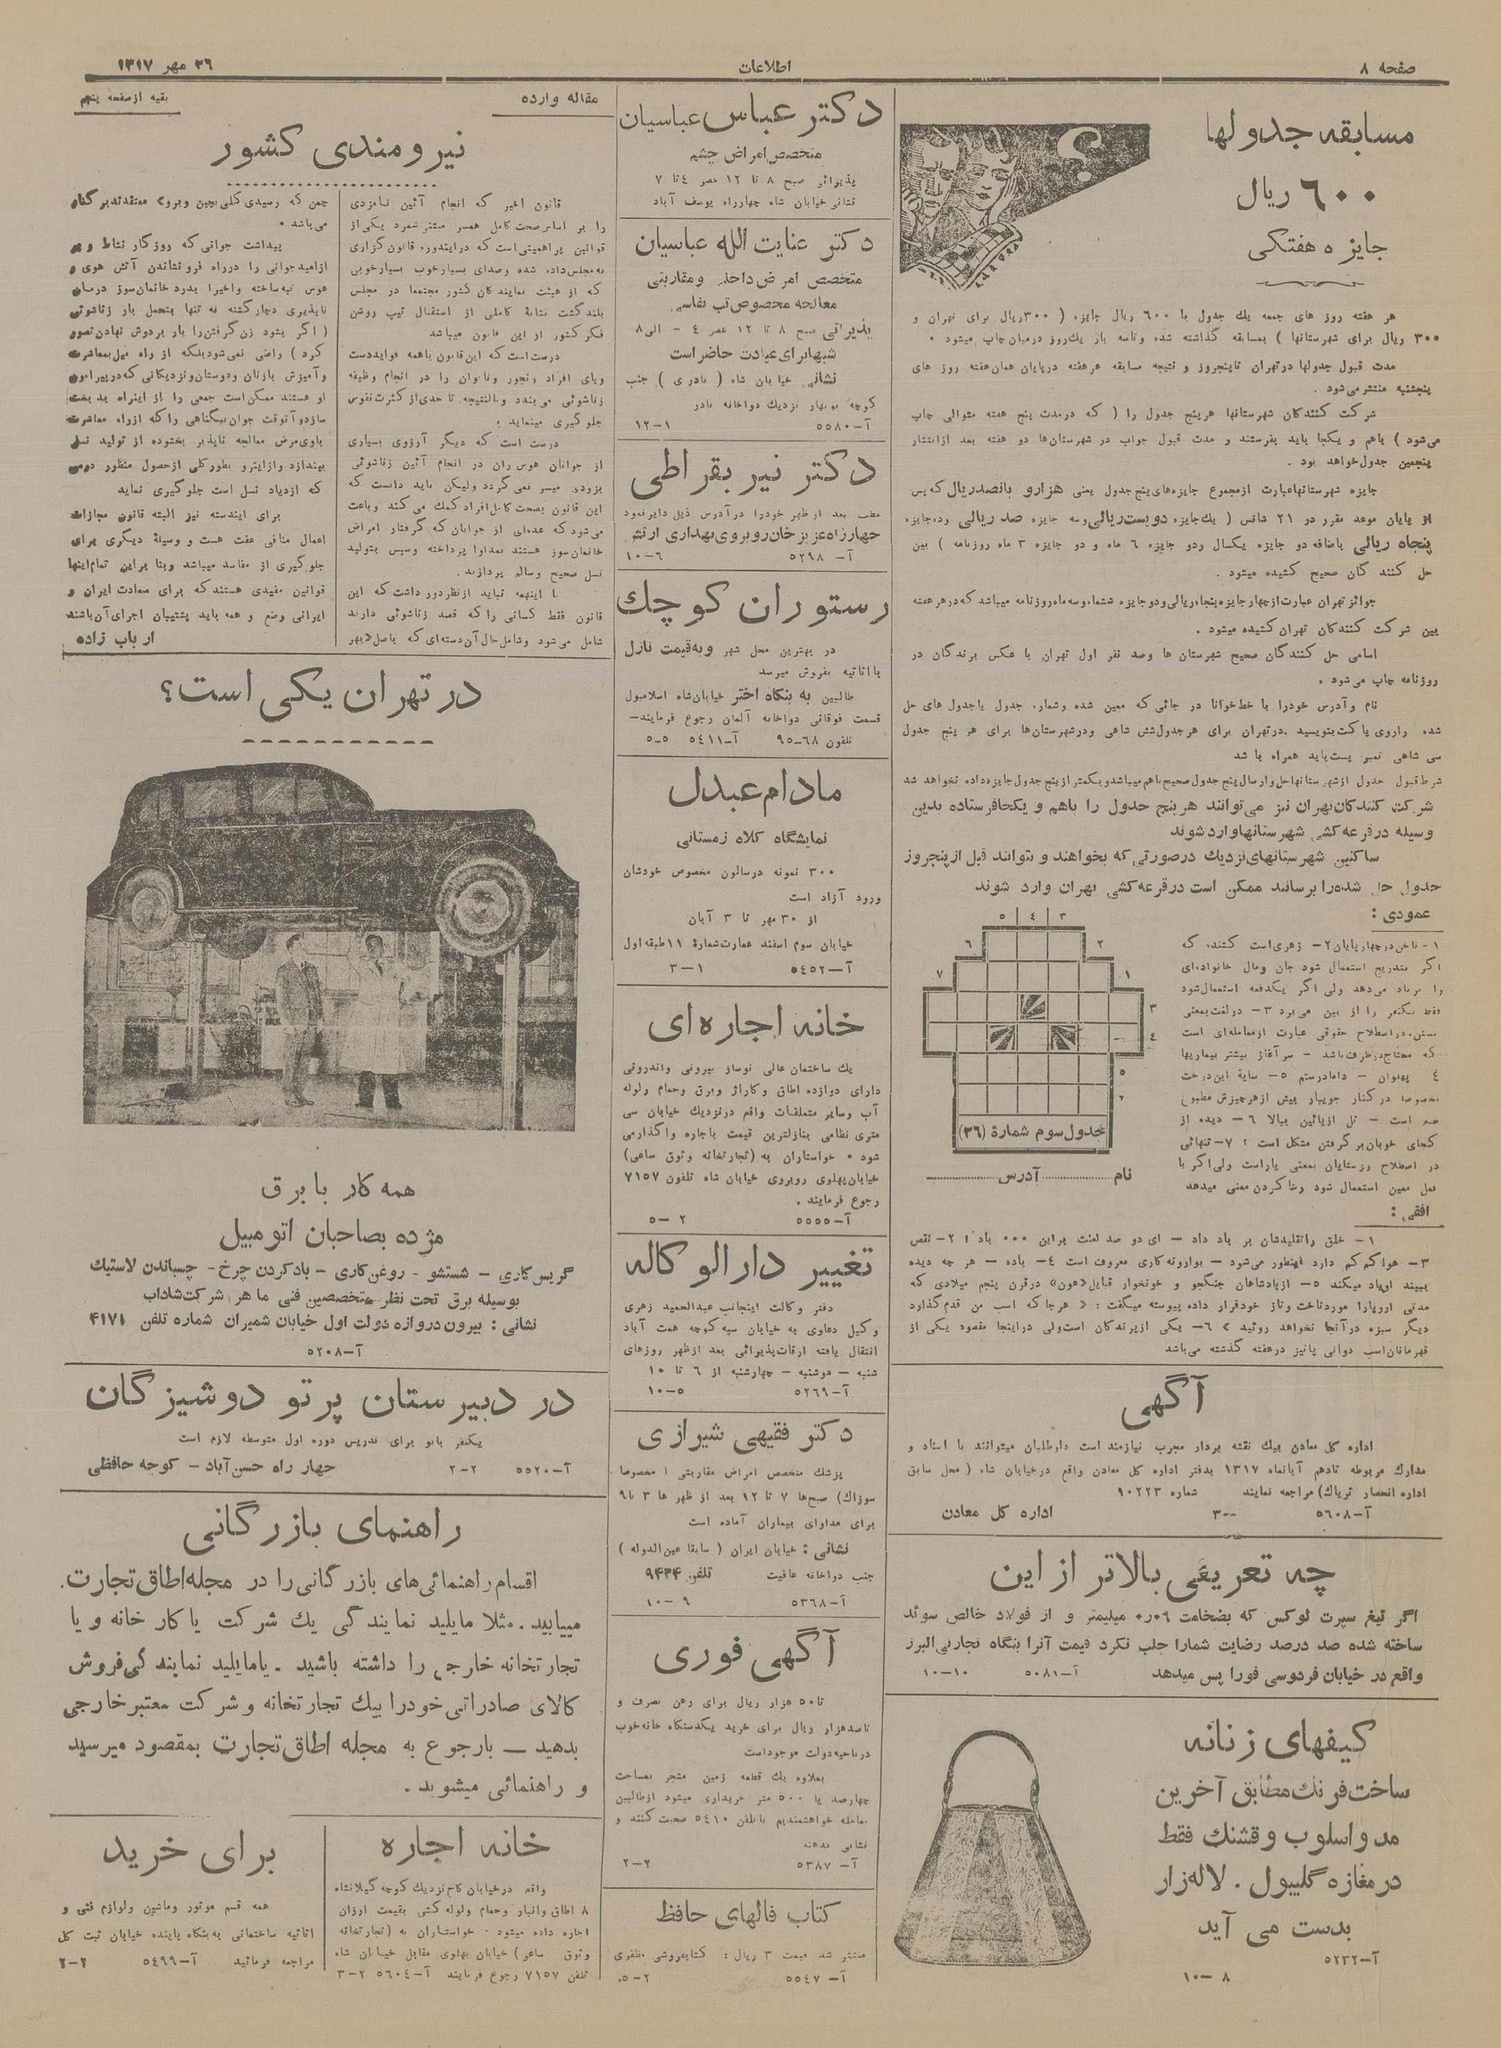 صفحه ۸
اطلاعات
۲۶ مهر ۱۳۱۷
مسابقه جدولها
۶۰۰ ریال
جایزه هفتگی
هر هفته روز های جمعه یك جدول با ۶۰۰ ریال جایزه ( ۳۰۰ ریال برای تهران و
۳۰۰ ریال برای شهرستانها ) بمسابقه گذاشته شده و تاسه بار یك روز درمیان چاپ میشود .
مدت قبول جدولها درتهران تا پنجروز و نتیجه مسابقه هر هفته در پایان همان هفته روز های
پنجشنبه منتشر می شود .
شرکت کنندگان شهرستانها هر پنج جدول را ( که درمدت پنج هفته متوالی چاپ
می شود ) باهم و یکجا باید بفرستند و مدت قبول جواب در شهرستان ها دو هفته بعد از انتشار
پنجمین جدول خواهد بود .
جایزه شهرستانها عبارت از مجموع جایزه های پنج جدول یعنی هزارو پانصدریال که پس
از پایان موعد مقرر در ۲۱ شانس ( یك جایزه دویست ریالی و سه جایزه صد ریالی و ده جایزه
پنجاه ریالی باضافه دو جایزه یکسال و دو جایزه ۶ ماه و دو جایزه ۳ ماه روزنامه ) بین
حل کنند گان صحیح کشیده میشود .
جوائز تهران عبارت از چهار جایزه پنجاه ریالی و دو جایزه ششماه و سه ماه روزنامه میباشد که در هر هفته
بین شرکت کنندکان تهران کشیده میشود .
اسامی حل کنندگان صحیح شهرستان ها وصد نفر اول تهران با عکس برندگان در
روزنامه چاپ می شود .
نام و آدرس خودرا با خط خوانا در جائی که معین شده وشماره جدول یا جدول های حل
شده را روی پاکت بنویسید . درتهران برای هر جدول شش شاهی ودر شهرستان ها برای هر پنج جدول
سی شاهی تمبر پست باید همراه باشد
شرط قبول جدول از شهرستانها حل و ارسال پنج جدول صحیح باهم میباشد و بکمتر از پنج جدول جایزه داده نخواهد شد
شرکت کنندگان تهران نیز می توانند هر پنج جدول را باهم و یکجا فرستاده بدین
وسیله در قرعه کشی شهرستانها وارد شوند
ساکنین شهرستانهای نزدیك درصورتی که بخواهند و بتوانند قبل از پنجروز
جدول حل شده را برسانند ممکن است در قرعه کشی تهران وارد شوند
عمودی :
۱ - ناخن در چهار پایان ۲ - زهری است کشنده که
اگر بتدریج استعمال شود جان ومال خانواده ای
را برباد می دهد ولی اگر یکدفعه استعمال شود
فقط یکنفر را از بین می برد ۳ - درلغت بمعنی
بستن، در اصطلاح حقوقی عبارت از معامله ای است
که محتاج دو طرف باشد - سر آغاز بیشتر بیماریها
٤ پهلوان - داماد رستم ۵ - سایه این درخت
مخصوصا در کنار جویبار بیش از هر چیزش
است - تل از پائین ببالا ۶ - دیده از
کجای خوبان بر گرفتن مشکل است ؟ ۷ - تنهائی
در اصطلاح روستایان بمعنی یار است ولی اگر با
فعل معین استعمال شود رها کردن معنی میدهد
جدول سوم شمارۀ (۳۶)
نام ........ آدرس ........
افقی :
۱ - خلق را تقلیدشان بر باد داد - ای دو صد لعنت براین ۰۰۰ باد ! ۲ - نقص
۳ - هوا کم کم دارد اینطور می شود - بوارونه کاری معروف است ٤ - باده - هر چه دیده
ببیند او یاد میکند ۵ - از پادشاهان جنگجو و خونخوار قبایل «هون» در قرن پنجم میلادی که
مدتی اروپارا مورد تاخت و تاز خود قرار داده پیوسته میگفت : « هر جا که اسب من قدم گذارد
دیگر سبزه در آنجا نخواهد روئید » ۶ - یکی از پرندکان است ولی در اینجا مقصود یکی از
قهرمانان اسب دوانی پائیز درهفته گذشته می باشد
آگهی
اداره کل معادن بیك نقشه بردار مجرب نیازمند است داوطلبان میتوانند با اسناد و
مدارك مربوطه تا دهم آبانماه ۱۳۱۷ بدفتر اداره کل معادن واقع در خیابان شاه ( محل سابق
اداره انحصار تریاك ) مراجعه نمایند شماره ۱۰۲۲۳
آ-۵۶۰۸ ۳-- اداره کل معادن
چه تعریفی بالاتر از این
اگر تیغ سپرت لوکس که بضخامت ۰٫۰۶ میلیمتر و از فولاد خالص سوئد
ساخته شده صد درصد رضایت شمارا جلب نکرد قیمت آنرا بنگاه تجارتی البرز
واقع در خیابان فردوسی فورا پس میدهد آ-۵۰۸۱ ۱۰-۱۰
کیفهای زنانه
ساخت فرنك مطابق آخرین
مد و اسلوب و قشنك فقط
در مغازه گلبیول . لاله زار
بدست می آید
آ-۵۲۳۲
۸ -۱۰
دکتر عباس عباسیان
متخصص امراض چشم
پذیرائی صبح ۸ تا ۱۲ عصر ٤ تا ۷
نشانی خیابان شاه چهارراه یوسف آباد
دکتر عنایت الله عباسیان
متخصص امراض داخلی و مقاربتی
معالجه مخصوص تب نفاسی
پذیرائی صبح ۸ تا ۱۲ عصر ٤ - الی ۸
شبها برای عیادت حاضر است
نشانی خیابان شاه ( نادری ) جنب
کوچه نوبهار نزدیك دواخانه نادر
آ-۵۵۸۰ ۱-۱۲
دکتر نیر بقراطی
مطب بعد از ظهر خودرا در آدرس ذیل دایر نمود
چهارراه عزیزخان روبروی بهداری ارتش
آ-۵۲۹۸ ۶-۱۰
رستوران کوچك
در بهترین محل شهر وبه قیمت نازل
با اثاثیه بفروش میرسد
طالبین به بنگاه اختر خیابان شاه اسلامبول
قسمت فوقانی دواخانه آلمان رجوع فرمایند-
تلفون ۶۸-۹۵ آ-۵٤۱۱ ۵-۵
مادام عبدل
نمایشگاه کلاه زمستانی
۳۰۰ نمونه درسالون مخصوص خودشان
ورود آزاد است
از ۳۰ مهر تا ۳ آبان
خیابان سوم اسفند عمارت شمارۀ ۱۱ طبقه اول
آ-۵٤۵۲ ۱-۳
خانه اجاره ای
یك ساختمان عالی نوساز بیرونی واندرونی
دارای دوازده اطاق و کاراژ وبرق وحمام ولوله
آب وسایر متعلقات واقع درنزدیك خیابان سی
متری نظامی بنازلترین قیمت باجاره واگذار می
شود . خواستاران به (تجارتخانه وثوق ساعی)
خیابان پهلوی روبروی خیابان شاه تلفون ۷۱۵۷
رجوع فرمایند .
آ-۵۵۵۵ ۲-۵
تغییر دارالوکاله
دفتر وکالت اینجانب عبدالحمید زهری
وکیل دعاوی به خیابان سپه کوچه همت آباد
انتقال یافته اوقات پذیرائی بعد از ظهر روزهای
شنبه - دوشنبه - چهارشنبه از ۶ تا ۱۰
آ-۵۲۶۹ ۵-۱۰
دکتر فقیهی شیرازی
پزشك متخصص امراض مقاربتی ( مخصوصا
سوزاك) صبح ها ۷ تا ۱۲ بعد از ظهر ها ۳ تا ۹
برای مداوای بیماران آماده است
نشانی : خیابان ایران ( سابقا عین الدوله )
جنب دواخانه عافیت تلفون ۹۴۳۴
آ-۵۳۶۸ ۹-۱۰
آگهی فوری
تا ۵۰ هزار ریال برای رهن تصرف و
تاصدهزار ریال برای خرید یکدستگاه خانه خوب
در ناحیه دولت موجود است
بعلاوه یك قطعه زمین مشجر بمساحت
چهارصد یا ۵۰۰ متر خریداری میشود از طالبین
معامله خواهشمندیم با تلفن ۵٤۱۰ صحبت کنند و
نشانی بدهند
آ-۵۳۸۷ ۲-۲
کتاب فالهای حافظ
منتشر شد قیمت ۳ ریال : کتابفروشی مظفری
آ-۵۵٤۷ ۲-۵
مقاله وارده
بقیه از صفحه پنجم
نیرومندی کشور
قانون اخیر که انجام آئین نامزدی
را بر اساس صحت کامل همسر مبتنی شمرد یکی از
قوانین پراهمیتی است که در ایندوره قانون گزاری
به مجلس داده شده وصدای بسیار خوب بسیار خوبی
که از هیئت نمایندکان کشور مجتمعا در مجلس
بلند گشت نشانۀ کاملی از استقبال تیپ روشن
فکر کشور از این قانون میباشد
درست است که این قانون باهمه فواید دست
وپای افراد رنجور وناتوان را در انجام وظیفه
زناشوئی می بندد و بالنتیجه تا حدی از کثرت نفوس
جلو گیری مینماید .
درست است که دیگر آرزوی بسیاری
از جوانان هوس ران در انجام آئین زناشوئی
بزودی میسر نمی گردد ولیکن باید دانست که
این قانون بصحت کامل افراد کمك می کند وباعث
می شود که عده ای از جوانان که گرفتار امراض
خانمان سوز هستند بمداوا پرداخته وسپس بتولید
نسل صحیح وسالم پردازند .
با اینهمه نباید از نظر دور داشت که این
قانون فقط کسانی را که قصد زناشوئی دارند
شامل می شود وشامل حال آن دسته ای که باصل «بهر
چمن که رسیدی گلی بچین وبرو» معتقدند بر کنار
می باشد .
پیداشت جوانی که روزگار نشاط و پر
از امید جوانی را در راه فرو نشاندن آتش هوی و
هوس تبه ساخته واخیرا بدرد خانمان سوز درمان
ناپذیری دچار کشته نه تنها بتحمل بار زناشوئی
( اگر بشود زن گرفتن را بار بردوش نهادن تصور
کرد ) راضی نمی شود بلکه از راه میل بمعاشرت
و آمیزش بازنان ودوستان ونزدیکانی که در پیرامون
او هستند ممکن است جمعی را از اینراه بد بخت
سازد و آنوقت جوان بیگناهی را که از راه معاشرت
باوی مرض معالجه ناپذیر بخشوده از تولید نسل
بیندازد و از اینرو بطور کلی از حصول منظور دومی
که ازدیاد نسل است جلوگیری نماید
برای ایندسته نیز البته قانون مجازات
اعمال منافی عفت هست و وسیلۀ دیگری برای
جلو گیری از مفاسد میباشد وبنا براین تمام اینها
قوانین مفیدی هستند که برای سعادت ایران و
ایرانی وضع و همه باید پشتیبان اجرای آن باشند
ارباب زاده
در تهران یکی است؟
همه کار با برق
مژده بصاحبان اتومبیل
گریس کاری - شستشو - روغن کاری - بادکردن چرخ - چسباندن لاستیك
بوسیله برق تحت نظر متخصصین فنی ماهر شرکت شاداب
نشانی : بیرون دروازه دولت اول خیابان شمیران شماره تلفن ۴۱۷۱
آ-۵۲۰۸
در دبیرستان پرتو دوشیزگان
یکنفر بانو برای تدریس دوره اول متوسطه لازم است
آ-۵۵۲۰ ۲-۲ چهار راه حسن آباد - کوچه حافظی
راهنمای بازرگانی
اقسام راهنمائی های بازرگانی را در مجله اطاق تجارت
مییابید . مثلا مایلید نمایندگی یك شرکت یا کارخانه و یا
تجارتخانه خارجی را داشته باشید . یا مایلید نمایندگی فروش
کالای صادراتی خودرا بیك تجارتخانه و شرکت معتبر خارجی
بدهید - بارجوع به مجله اطاق تجارت بمقصود میرسید
و راهنمائی میشوید .
خانه اجاره
واقع در خیابان کاخ نزدیك کوچه گیلانشاه
۸ اطاق وانبار وحمام ولوله کشی بقیمت ارزان
اجاره داده میشود . خواستاران به (تجارتخانه
وثوق ساعی) خیابان پهلوی مقابل خیابان شاه
تلفن ۷۱۵۷ رجوع فرمایند آ-۵۶۰٤ ۲-۳
برای خرید
همه قسم موتور وماشین ولوازم فنی و
اثاثیه ساختمانی به بنگاه پاینده خیابان ثبت کل
مراجعه فرمائید آ-۵٤۹۹ ۲-۲